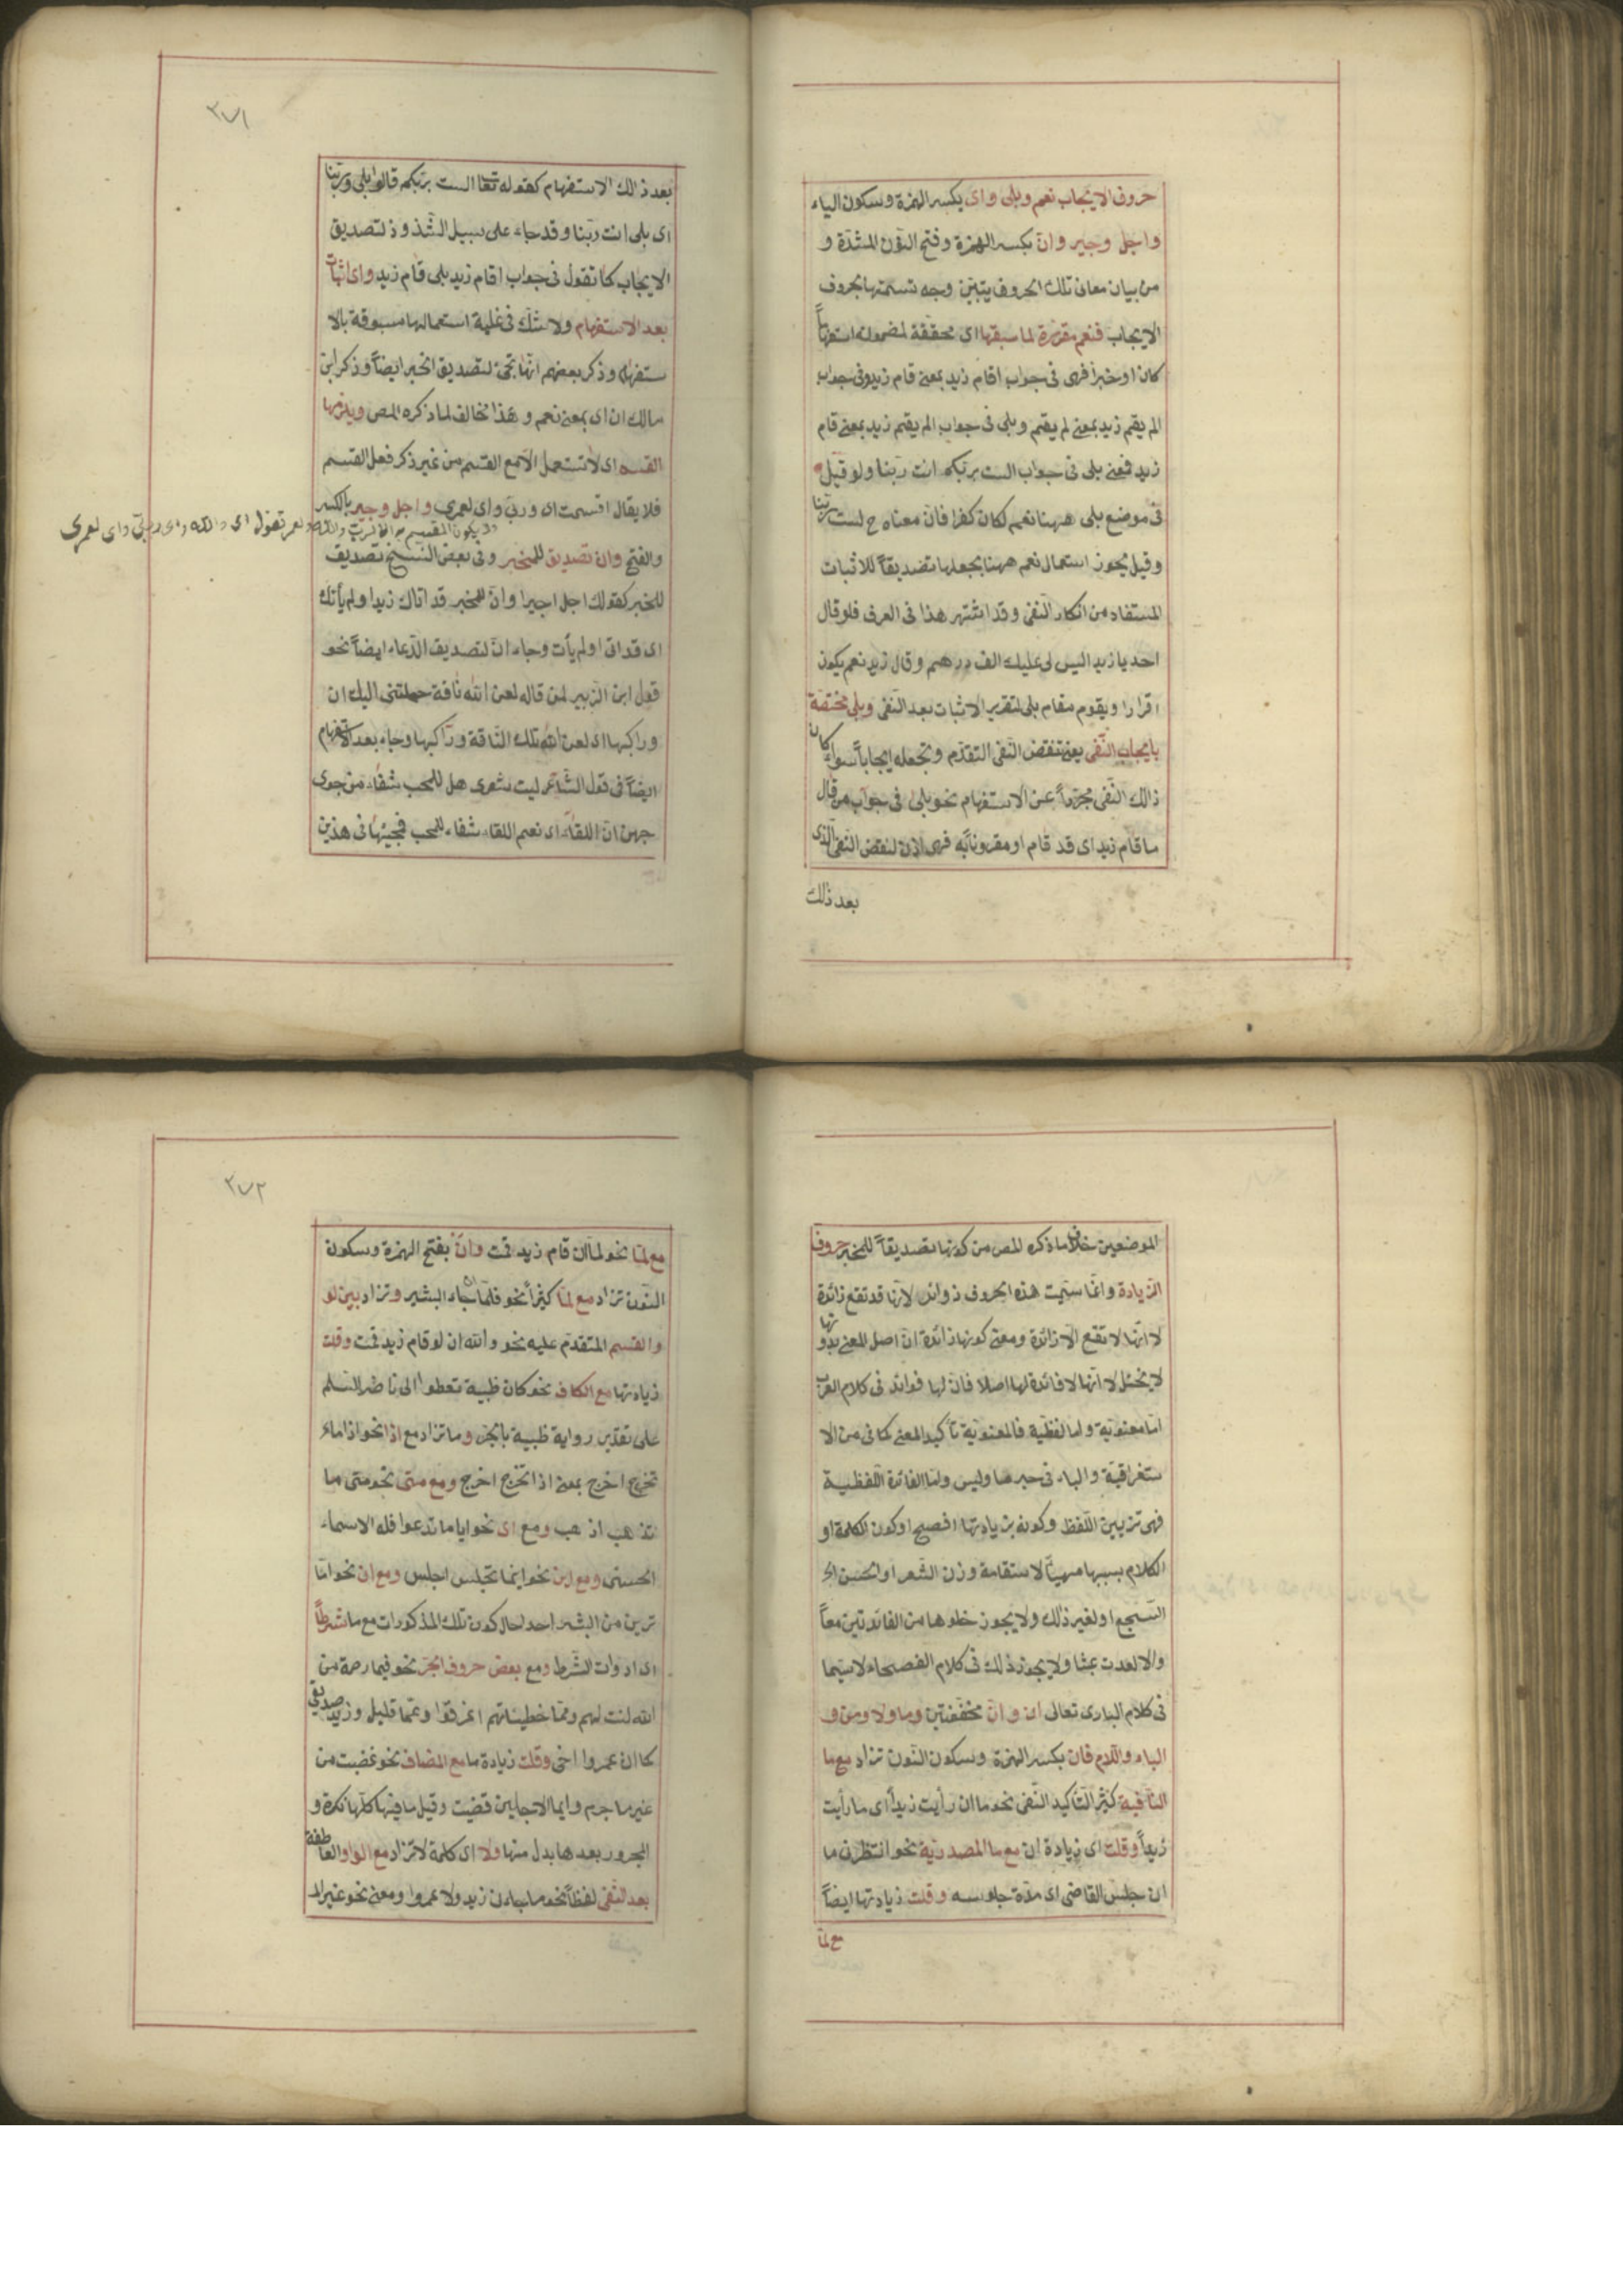 حروف الايجاب نعم وبلى واى بكسر الهمزة وسكون الياء
واجل وجير وانّ بكسر الهمزة وفتح النّون المشدّدة و
من بيان معانى تلك الحروف يتبيّن وجه تسميتها بحروف
الايجاب فنعم مقرّرة لما سبقها اى محققة لمضمونه استفهاماً
كان او خبرا فهى فى جواب اقام زيد بمعنى قام زيد وفى جواب
الم يقم زيد بمعنى لم يقم وبلى فى جواب الم يقم زيد بمعنى قام
زيد فمعنى بلى فى جواب الست بربكم انت ربّنا ولو قيل
فى موضع بلى ههنا نعم لكان كفرا فان معناه ح لست ربّنا
وقيل يجوز استعمال نعم ههنا بجعلها تصديقاً للاثبات
المستفاد من انكار النّفى وقد اشتهر هذا فى العرف فلو قال
احد يا زيد اليس لى عليك الف درهم وقال زيد نعم يكون
اقرارا ويقوم مقام بلى لتقرير الاثبات بعد النّفى وبلى مختصّة
بايجاب النّفى يعنى تنقض النّفى المتقدّم وتجعله ايجاباً سواء كان
ذلك النّفى مجرّداً عن الاستفهام نحو بلى فى جواب من قال
ما قام زيد اى قد قام او مقرونا به فهى اذن لنقض النّفى الّذى
بعد ذلك
٣٧١
بعد ذلك الاستفهام كقوله تعا الست بربكم قالوا بلى وربّنا
اى بلى انت ربّنا وقد جاء على سبيل الشّذوذ لتصديق
الايجاب كما تقول فى جواب اقام زيد بلى قام زيد واى اثبات
بعد الاستفهام ولا شكّ فى غلبة استعمالها مسبوقة بالا
ستفهام وذكر بعضهم انّها تجئ لتصديق الخبر ايضاً وذكر ابن
مالك ان اى بمعنى نعم وهذا مخالف لما ذكره المص ويلزمها
القسم اى لا تستعمل الّا مع القسم من غير ذكر فعل القسم
فلا يقال اقسمت اى وربّى واى لعمرى واجل وجير بالكسر
ولا يكون المقسم به الا الرّب والله ولعمر تقول اى والله واى وربّى واى لعمرى
والفتح وان تصديق للمخبر وفى بعض النّسخ تصديق
للخبر كقولك اجل اجيرا وانّ للمخبر قد اتاك زيد او لم يأتك
اى قد اتى او لم يأت وجاء انّ لتصديق الدّعاء ايضاً نحو
قول ابن الزّبير لمن قال له لعن الله ناقة حملتنى اليك ان
وراكبها اى لعن الله تلك النّاقة وراكبها وجاء بعد الاستفهام
ايضاً فى قول الشّاعر ليت شعرى هل للمحب شفاء من جوى
جهن انّ اللقاء اى نعم اللقاء شفاء للمحب فمجيئها فى هذين
الموضعين خلاف ما ذكره المص من كونها تصديقاً للمخبر حروف
الزّيادة وانّما سمّيت هذه الحروف زوائد لانّها قد تقع زائدة
لا انّها لا تقع الّا زائدة ومعنى كونها زائدة انّ اصل المعنى بدونها
لا يختل لا انّها لا فائدة لها اصلا فان لها فوائد فى كلام العرب
امّا معنويّة واما لفظيّة فالمعنويّة تأكيد المعنى كما فى من الا
ستغراقيّة والباء فى خبر ما وليس وامّا الفائدة اللّفظيّة
فهى تزيين اللّفظ وكونه بزيادتها افصح او كون الكلمة او
الكلام بسببها مهيّئاً لاستقامة وزن الشّعر او لحسن
السّجع او لغير ذلك ولا يجوز خلوها من الفائدتين معاً
والا لعدت عبثا ولا يجوز ذلك فى كلام الفصحاء لا سيّما
فى كلام البارى تعالى ان وانّ مخفّفتين وما ولا ومن و
الباء واللّام فان بكسر الهمزة وسكون النّون تزاد مع ما
النّافية كثير التّأكيد النّفى نحو ما ان رأيت زيداً اى ما رأيت
زيداً وقلت اى زيادة ان مع ما المصدريّة نحو انتظرنى ما
ان جلس القاضى اى مدّة جلوسه وقلت زيادتها ايضاً
مع لمّا
٣٧٢
مع لمّا نحو لما ان قام زيد قمت وانّ بفتح الهمزة وسكون
النّون تزاد مع لمّا كثيراً نحو فلمّا ان جاء البشير وتزاد بين لو
والقسم المتقدّم عليه نحو والله ان لو قام زيد قمت وقلت
زيادتها مع الكاف نحو كان ظبية تعطوا الى ناضر السّلم
على تقدير رواية ظبية بالجرّ وما تزاد مع اذا نحو اذا ما
تخرج اخرج بمعنى اذا تخرج اخرج ومع متى نحو متى ما
تذهب اذهب ومع اى نحو ايا ما تدعوا فله الاسماء
الحسنى ومع اين نحو اينما تجلس اجلس ومع ان نحو امّا
ترين من البشر احدا حال كون تلك المذكورات مع ما شرطاً
اى ادوات الشّرط ومع بعض حروف الجرّ نحو فيما رحمة من
الله لنت لهم وممّا خطيئاتهم اغرقوا وعمّا قليل وزيد صديقى
كما ان عمروا اخى وقلت زيادة ما مع المضاف نحو غضبت من
غير ما جرم وايما الاجلين قضيت وقيل ما فيها كلّها نكرة و
المجرور بعدها بدل منها ولا اى كلمة لا تزاد مع الواو العاطفة
بعد النّفى لفظاً نحو ما جاءنى زيد ولا عمروا ومعنى نحو غير الم